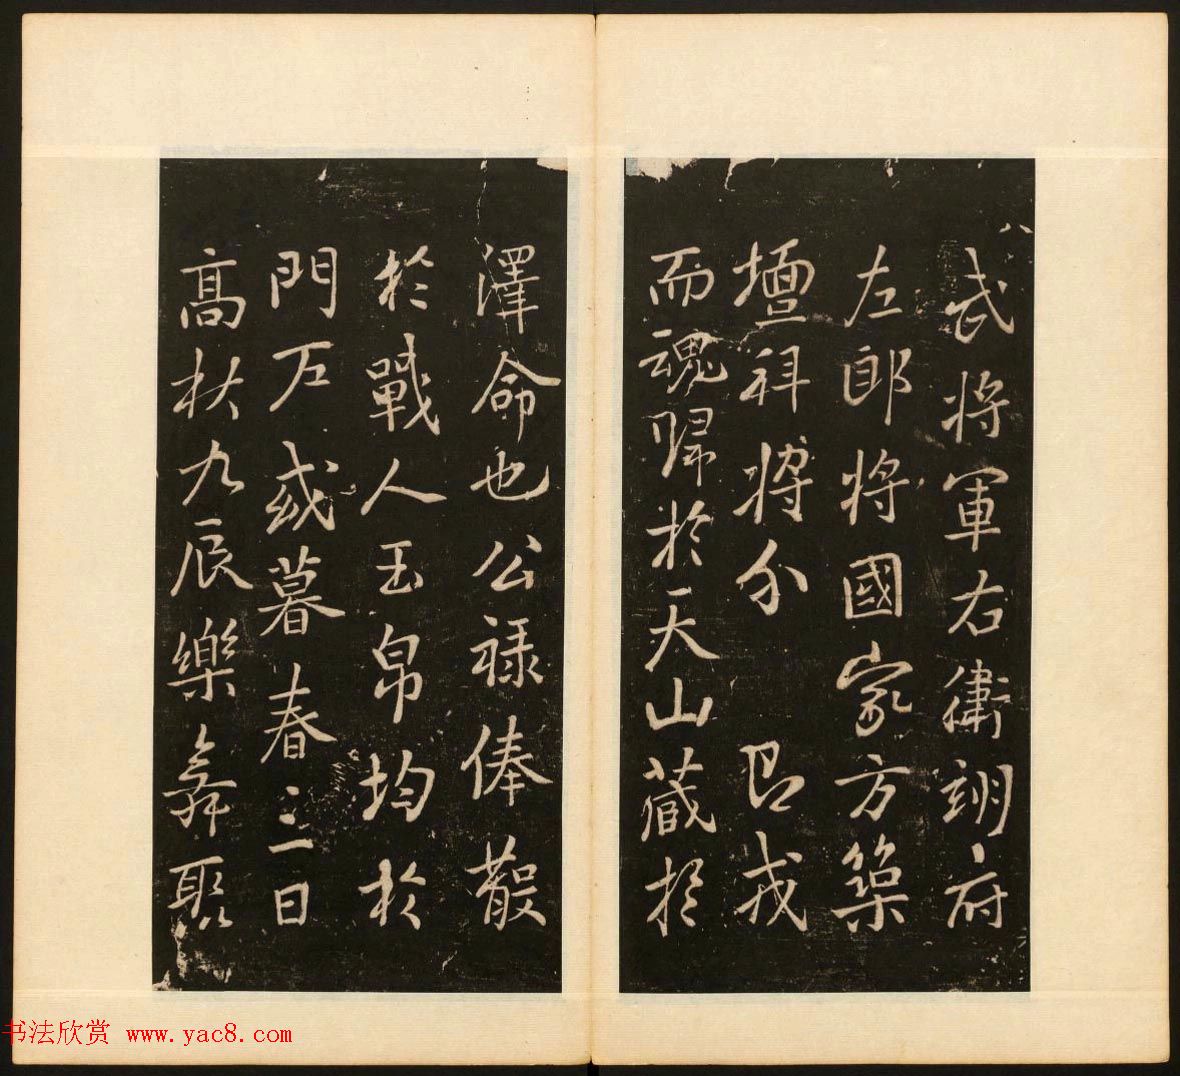 武將軍右衛翊府
左郎將國家方築
壇拜將分即戎
而魂歸於天山藏於
澤命也公祿俸散
於戰人玉帛均於
門下或暮春三日
高秋九辰樂舞聚
书法欣赏 www.yac8.com